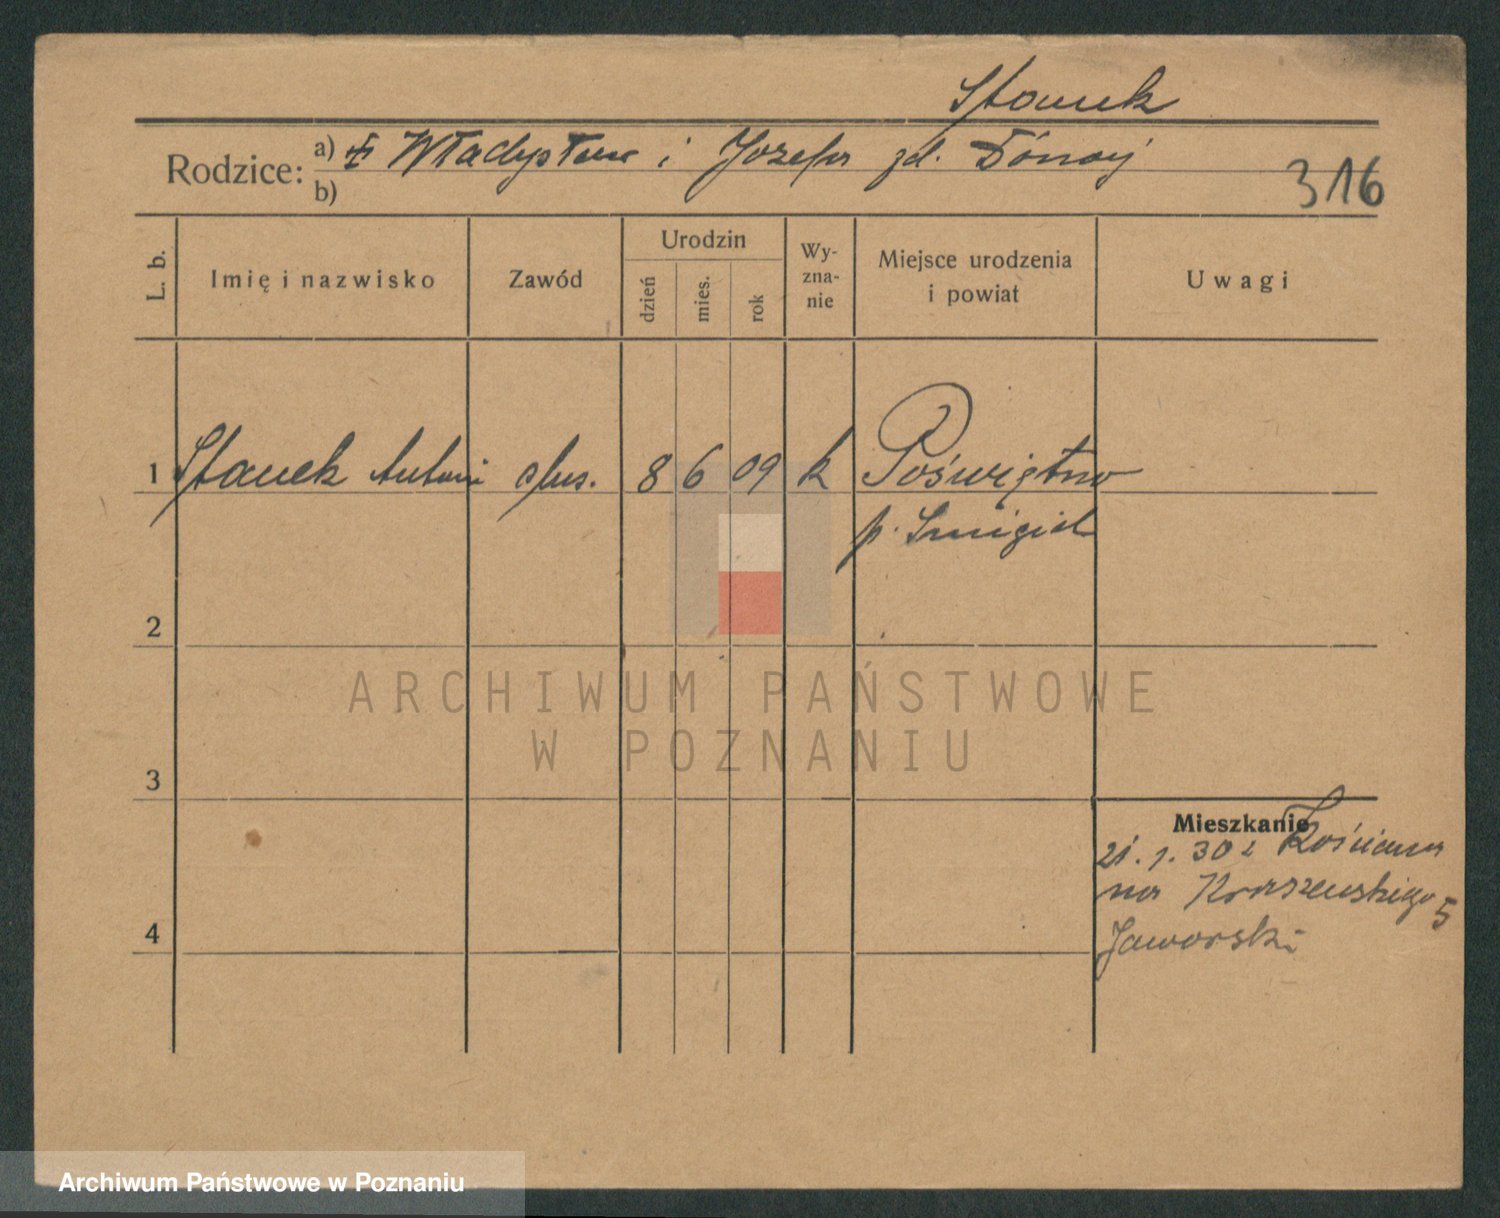 Stanek
Rodzice: a) Władysław i Józefa zd.
b)
316
L. b.
Imię i nazwisko
Zawód
Urodzin
dzień
mies.
rok
Wy-
zna-
nie
Miejsce urodzenia
i powiat
Uwagi
1 Stanek Antoni 8 6 09 k Poświętno
p. Śmigiel
2
ARCHIWUM PAŃSTWOWE
W POZNANIU
3
Mieszkanie
21. 1. 30 z Kościana
na Kraszewskiego 5
Jaworski
4
Archiwum Państwowe w Poznaniu